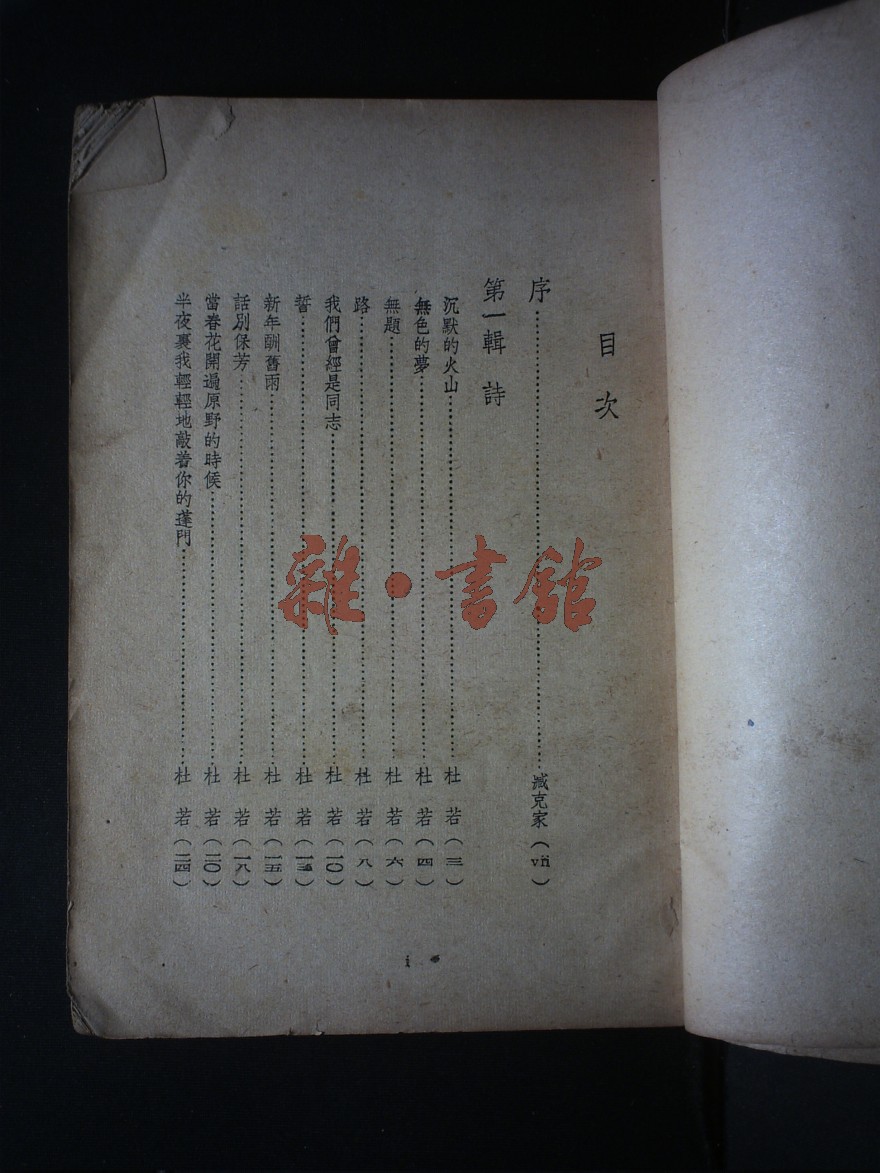 目次
序 臧克家 (vii)
第一輯 詩
沉默的火山 杜若 (三)
無色的夢 杜若 (四)
無題 杜若 (六)
路 杜若 (八)
我們曾經是同志 杜若 (一〇)
誓 杜若 (一三)
新年酬舊雨 杜若 (一五)
話別保芳 杜若 (一八)
當春花開過原野的時候 杜若 (二〇)
半夜裏我輕輕地敲着你的蓬門 杜若 (二四)
i
雜·書館